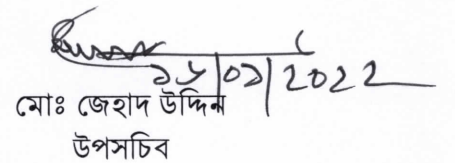 ১৮/০১/2022
মোঃ জেহাদ উদ্দিন
উপসচিব